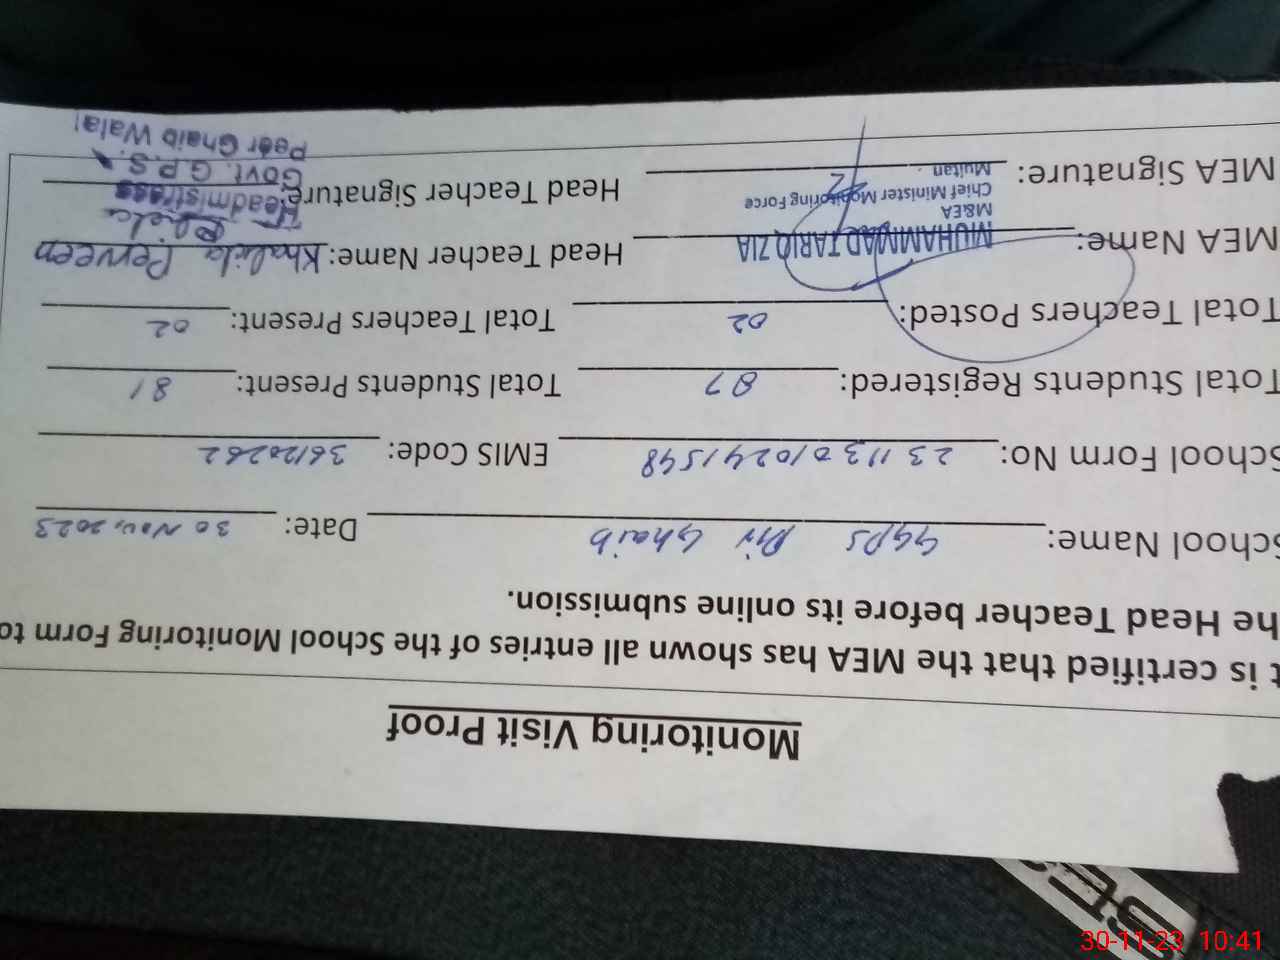 Monitoring Visit Proof
t is certified that the MEA has shown all entries of the School Monitoring Form to
he Head Teacher before its online submission.
School Name: GGPS Pir Ghaib Date: 30 Nov, 2023
School Form No: 23113010241548 EMIS Code: 36120262
Total Students Registered: 87 Total Students Present: 81
Total Teachers Posted: 02 Total Teachers Present: 02
MEA Name: MUHAMMAD TARIQ ZIA Head Teacher Name: Khalida Perveen
M&EA
Chief Minister Monitoring Force
Multan
MEA Signature: Head Teacher Signature:
Headmistress
Govt. G.P.S.
Peer Ghaib Wala
30-11-23 10:41